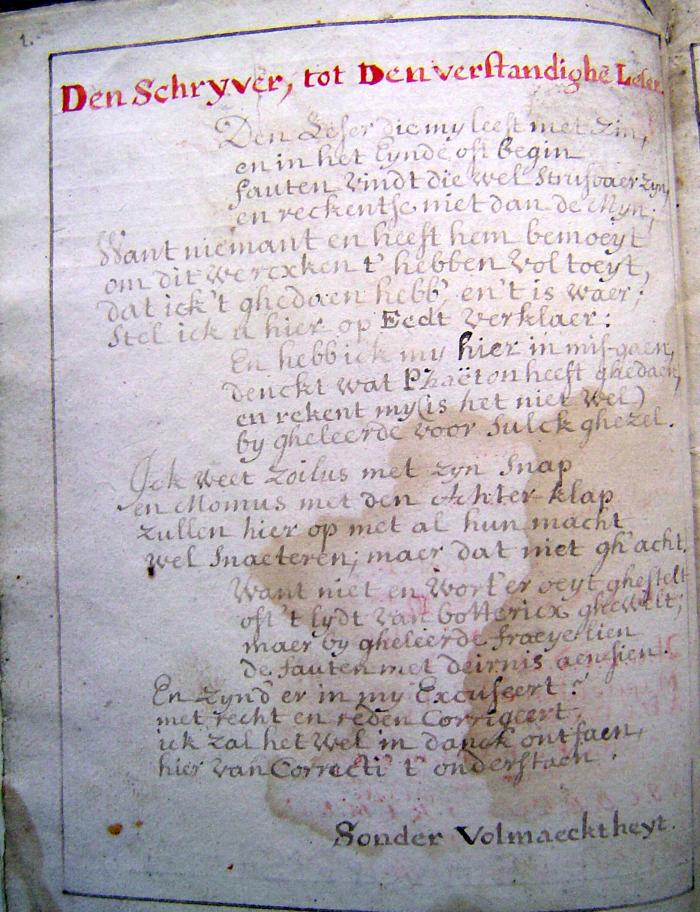 2.
Den Schryver, tot Den verstandighē Leser.
Den Leser die my leest met zin,
en in het Eynde oft begin
fauten vindt die wel Strafbaer zyn,
en reckentse niet dan de Myn;
Want niemant en heeft hem bemoeyt
om dit wercxken t' hebben vol toeyt,
dat ick 't ghedaen hebb' en 't is waer;
Stel ick u hier op Eedt verklaer:
En hebb ick my hier in mis-gaen,
denckt wat Phaëton heeft ghedaen,
en rekent my (is het niet wel)
by gheleerde voor Sulck ghezel.
Ick weet Zoilus met zyn Snap
en Momus met den Achter-klap
zullen hier op met al hun macht
wel Snaeteren; maer dat niet gh'acht.
Want niet en wort'er oeyt ghestelt
oft 't lydt van botterick ghewelt;
maer by gheleerde fraeye lien
de fauten met deirnis aensien.
En zynd' er in my Excuseert:
met recht en reden Corrigeert,
ick zal het wel in danck ontfaen,
hier van Correcti t' onderstaen.
Sonder Volmaecktheyt.